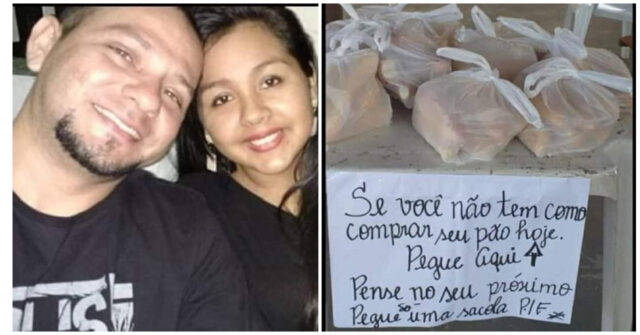 Se você não tem como
comprar seu pão hoje.
Pegue Aqui ↑
Pense no seu próximo
Pegue só uma sacola P/F